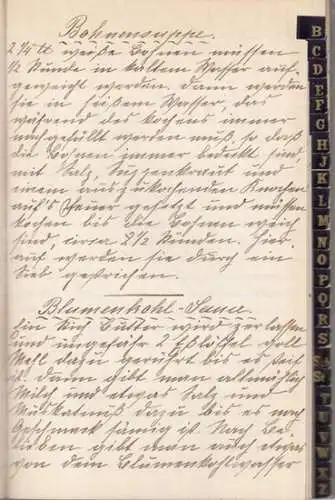 Bohnensuppe.
2 1/4 tt weiße Bohnen müssen
1/2 Stunde in kaltem Wasser auf-
geweicht werden, dann werden
sie in heißem Wasser, das
während des Kochens immer
nachgefüllt werden muß, so daß
die Bohnen immer bedeckt sind,
mit Salz, Suppenkraut und
einem auszukochenden Knochen
auf's Feuer gesetzt und müssen
kochen bis die Bohnen weich
sind, circa 2 1/2 Stunden. Hier-
auf werden sie durch ein
Sieb gestrichen.
Blumenkohl-Sauce.
Ein Stich Butter wird zerlassen
und ungefähr 2 Eßlöffel voll
Mehl dazu gerührt bis es steif
ist, dann gibt man allmählich
Milch und etwas Salz und
Muskatnuß dazu bis es nach
Geschmack sämig ist. Nach Be-
lieben gibt man auch etwas
von dem Blumenkohlwasser
B
C
D
E
F
G
H
J
K
L
M
N
O
P
Q
R
S
St
T
U
V
W
X
Z